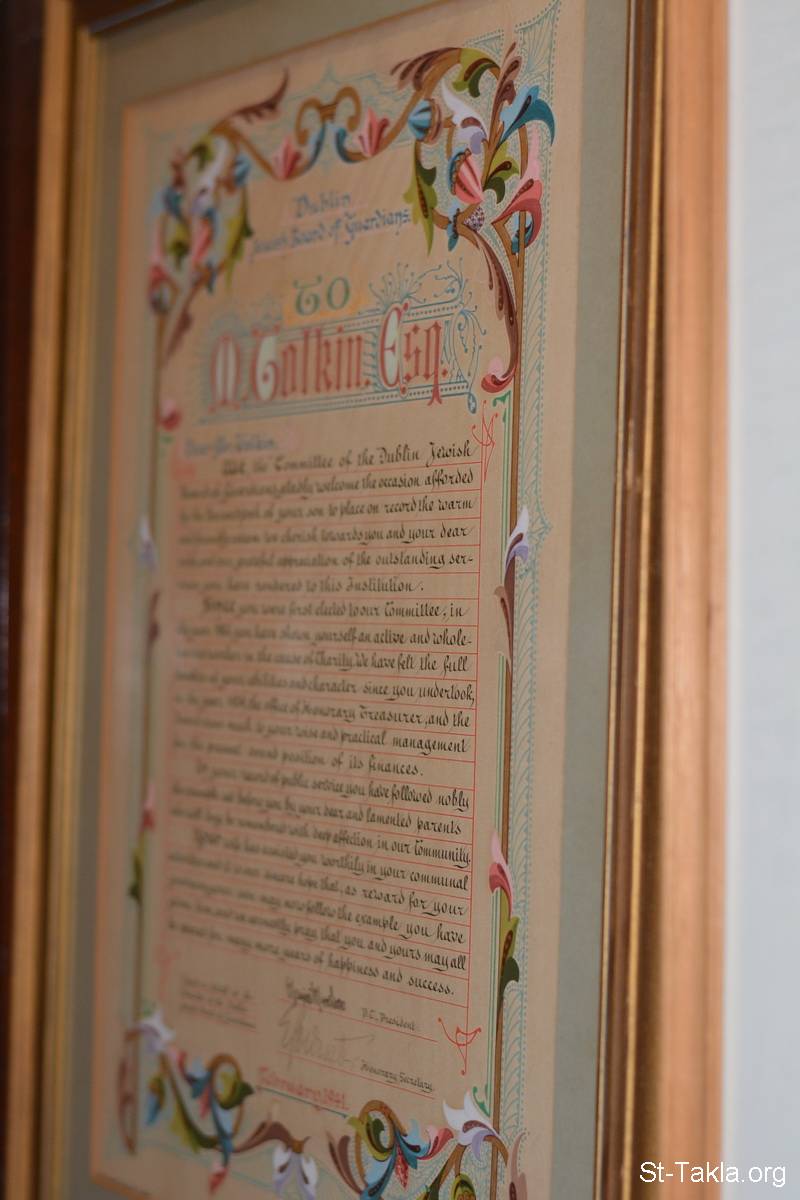 Dublin
Jewish Board of Guardians.
TO
M. Talkin. Esq.
Dear Mr. Talkin,
We, the Committee of the Dublin Jewish
Board of Guardians, gladly welcome the occasion afforded
by the of your son to place on record the warm
we cherish towards you and your dear
and our grateful appreciation of the outstanding ser-
vices you have rendered to this Institution.
Since you were first elected to our Committee, in
the year you have shown yourself an active and whole-
in the cause of Charity. We have felt the full
of your abilities and character since you undertook,
in the year the office of Honorary Treasurer, and the
much to your wise and practical management
for the present sound position of its finances.
In your record of public service you have followed nobly
the example set before you by your dear and lamented parents
who will long be remembered with deep affection in our Community.
Your wife has assisted you worthily in your communal
activities and it is our sincere hope that, as reward for your
your son may now follow the example you have
given him, and we earnestly pray that you and yours may all
be spared for many more years of happiness and success.
P.C., President.
Honorary Secretary.
February, 1941.
St-Takla.org